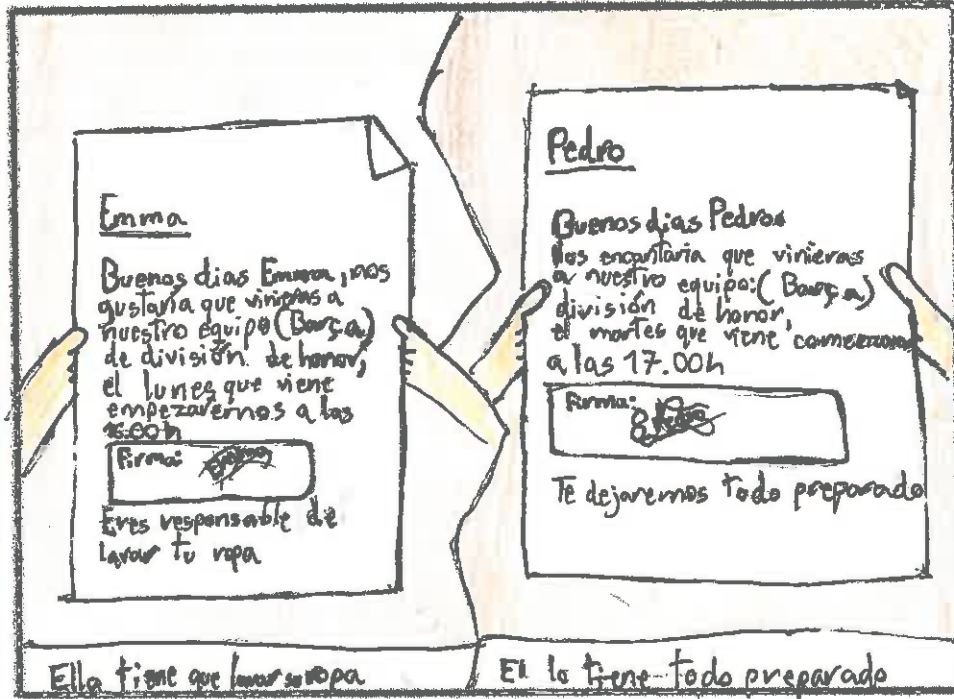 Emma
Buenos dias Emma, nos
gustaría que vinieras a
nuestro equipo (Barça)
de división de honor,
el lunes que viene
empezaremos a las
16:00h
Firma: Emma
Eres responsable de
lavar tu ropa
Ella tiene que lavar su ropa
Pedro
Buenos dias Pedro
Nos encantaria que vinieras
a nuestro equipo: (Barça)
división de honor,
el martes que viene
a las 17.00h
Firma: Pedro
Te dejaremos todo preparado
El lo tiene todo preparado